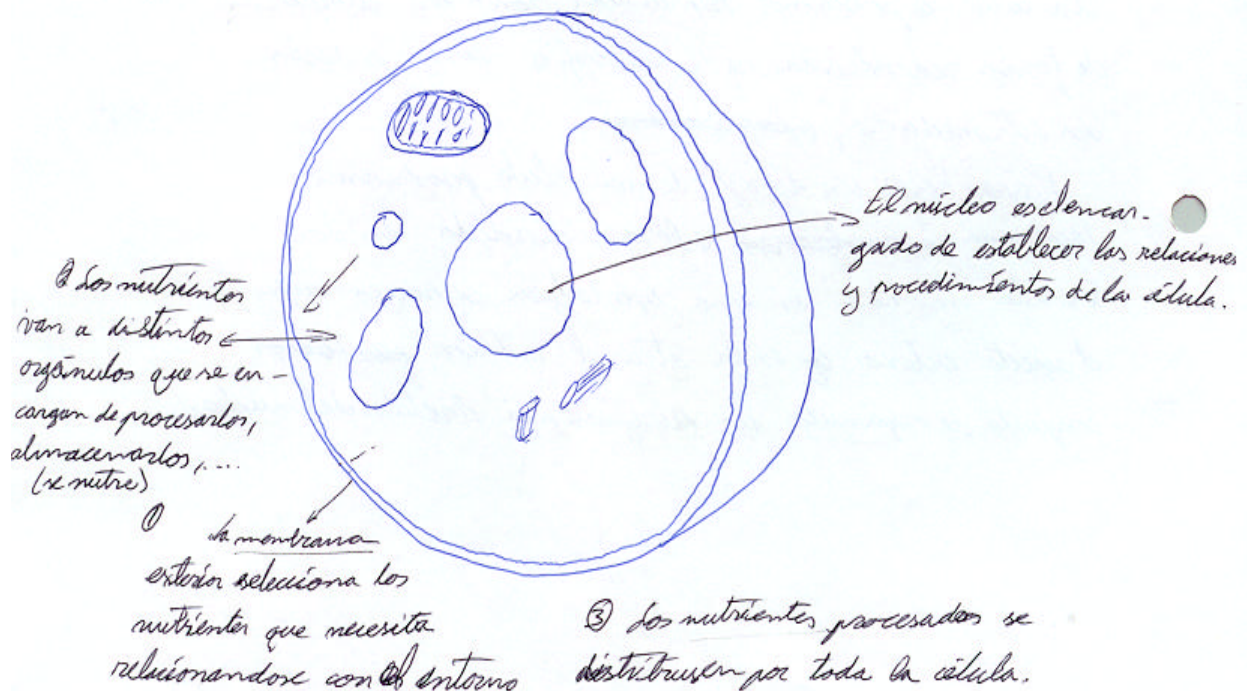 El núcleo es el encar-
gado de establecer las relaciones
y procedimientos de la célula.
② Los nutrientes
van a distintos
orgánulos que se en-
cargan de procesarlos,
almacenarlos,....
(se nutre)
①
la membrana
exterior selecciona los
nutrientes que necesita
relacionandose con el entorno
③ Los nutrientes procesados se
distribuyen por toda la célula.